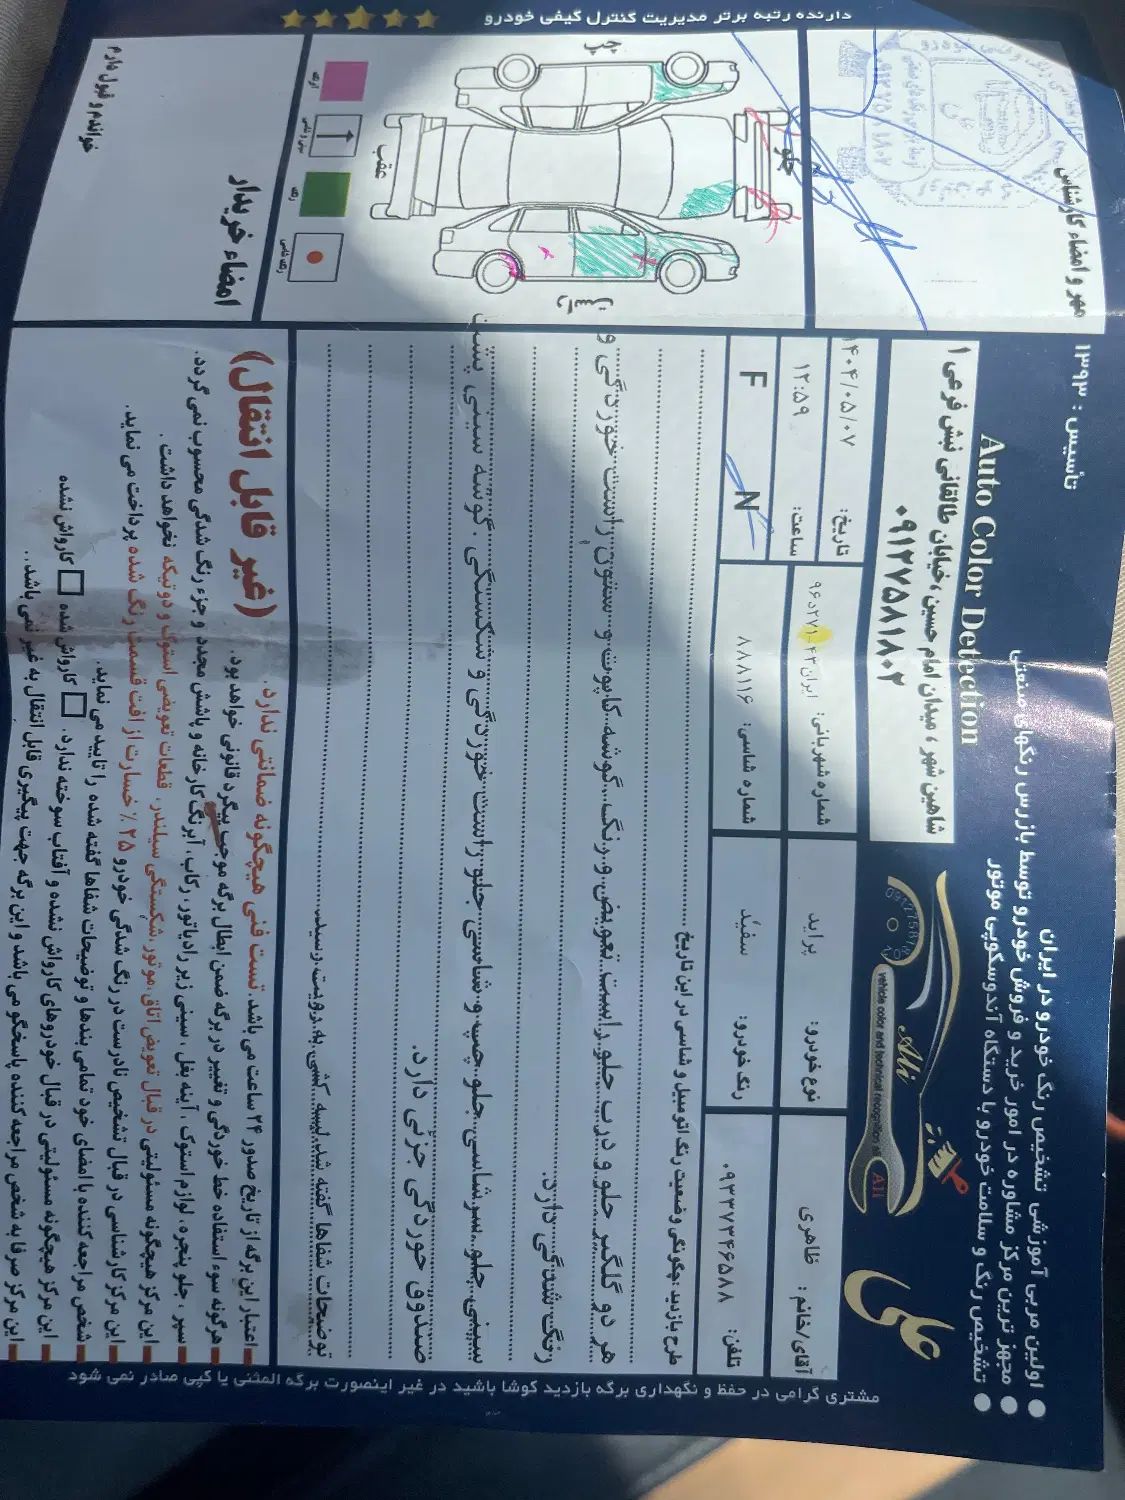 دارنده رتبه برتر مدیریت کنترل کیفی خودرو
تأسیس : ۱۳۹۳
اولین مربی آموزشی تشخیص رنگ خودرو در ایران
مجهز ترین مرکز مشاوره در امور خرید و فروش خودرو توسط بازرس رنگهای صنعتی
تشخیص رنگ و سلامت خودرو با دستگاه آندوسکوپی موتور
Auto Color Detection
شاهین شهر ، میدان امام حسین ،خیابان طالقانی نبش فرعی ۱
۰۹۱۲۷۵۸۱۸۰۲
علی
Ali
vehicle color and technical recognition
Ali
آقای/خانم : ظاهری
نوع خودرو: پراید
شماره شهربانی: ایران ۴۳-۲۷۱د۹۶
تاریخ: ۱۴۰۴/۰۵/۰۷
ساعت: ۱۲:۵۹
تلفن: ۰۹۳۳۷۳۴۶۵۸۸
رنگ خودرو: سفید
شماره شاسی: ۸۸۸۱۱۶
N
F
طرح بازدید چگونگی وضعیت رنگ اتومبیل و شاسی در این تاریخ
هر دو گلگیر جلو و درب جلو راست تعویض و رنگ. گوشه کاپوت و ستون راست خوردگی و
رنگ شدگی دارد.
سینی جلو. سرشاسی جلو چپ و شاسی جلو راست خوردگی و شکستگی. گوشه سینی پشت
صندوق خوردگی جزئی دارد.
توضیحات شفاها گفته شد. لیسه کشی به رویت رسید.
اعتبار این برگه از تاریخ صدور ۲۴ ساعت می باشد. تست فنی هیچگونه ضمانتی ندارد.
(غیر قابل انتقال)
هرگونه سوء استفاده خط خوردگی و تغییر در برگه ضمن ابطال برگه موجب پیگرد قانونی خواهد بود.
سپر ، جلو پنجره، لوازم استوک ، آینه بغل ، سینی زیر رادیاتور، رکاب، آبرنگ کارخانه و پاشش مجدد و جزء رنگ شدگی محسوب نمی گردد.
این مرکز هیچگونه مسئولیتی در قبال تعویض اتاق ،موتور ،شکستگی سیلندر، قطعات تعویضی استوک و دوتیکه نخواهد داشت .
این مرکز کارشناسی در قبال تشخیص نادرست در رنگ شدگی خودرو ۲۵٪ خسارت از افت قسمت رنگ شده پرداخت می نماید.
شخص مراجعه کننده با امضای خود تمامی بندها و توضیحات شفاها گفته شده را تایید می نماید.
این مرکز هیچگونه مسئولیتی در قبال خودروهای کارواش نشده و آفتاب سوخته ندارد. کارواش شده کارواش نشده
این مرکز صرفا به شخص مراجعه کننده پاسخگو می باشد و این برگه جهت پیگیری قابل انتقال به غیر نمی باشد.
مهر و امضاء کارشناس
چپ
جلو
عقب
راست
امضاء خریدار
خواندم و قبول دارم
مشتری گرامی در حفظ و نگهداری برگه بازدید کوشا باشید در غیر اینصورت برگه المثنی یا کپی صادر نمی شود